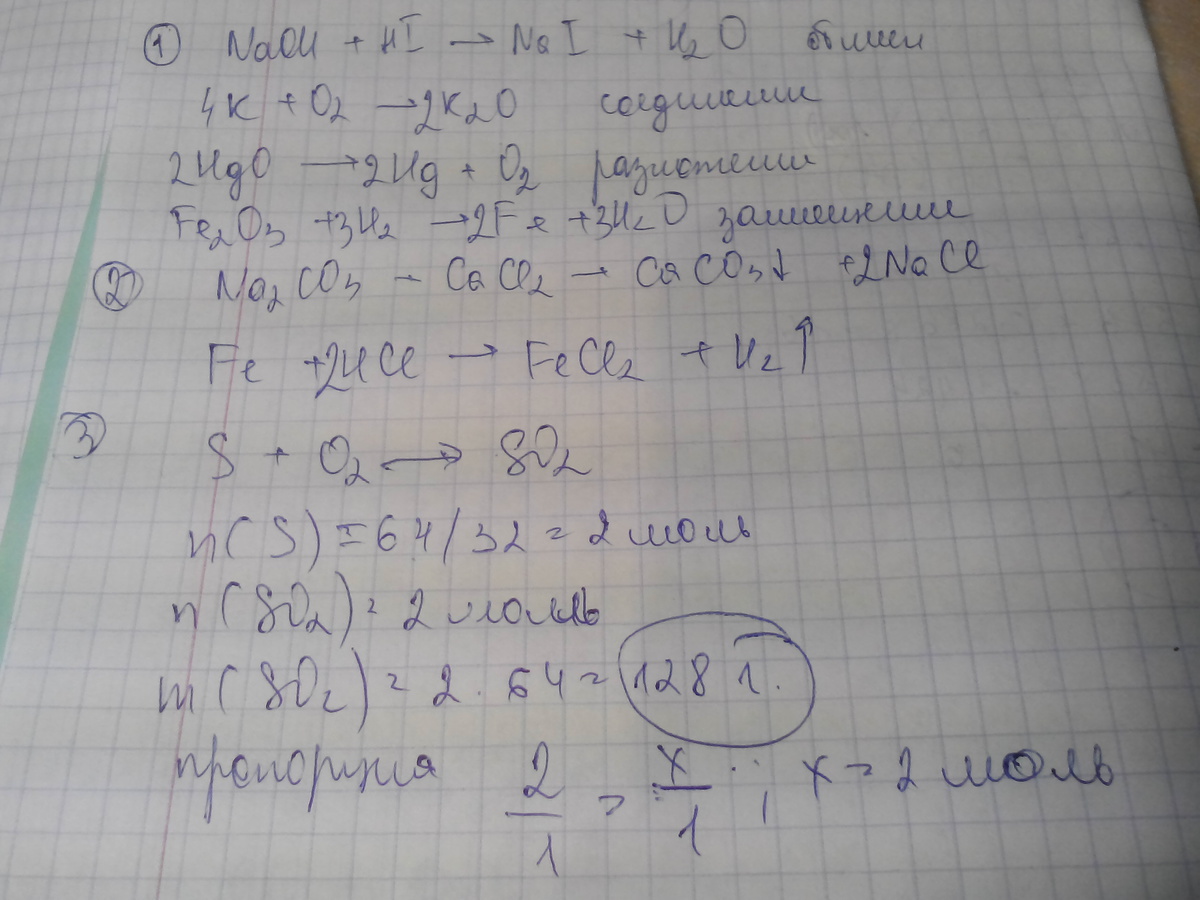 ① NaOH + HI → NaI + H₂O обмен
4K + O₂ → 2K₂O соединении
2HgO → 2Hg + O₂ разложении
Fe₂O₃ + 3H₂ → 2Fe + 3H₂O замещении
② Na₂CO₃ – CaCl₂ → CaCO₃↓ + 2NaCl
Fe + 2HCl → FeCl₂ + H₂↑
③
S + O₂ → SO₂
n(S) = 64/32 = 2 моль
n(SO₂) = 2 моль
m(SO₂) = 2 · 64 = 128 г.
пропорция 2/1 = x/1 ; x = 2 моль